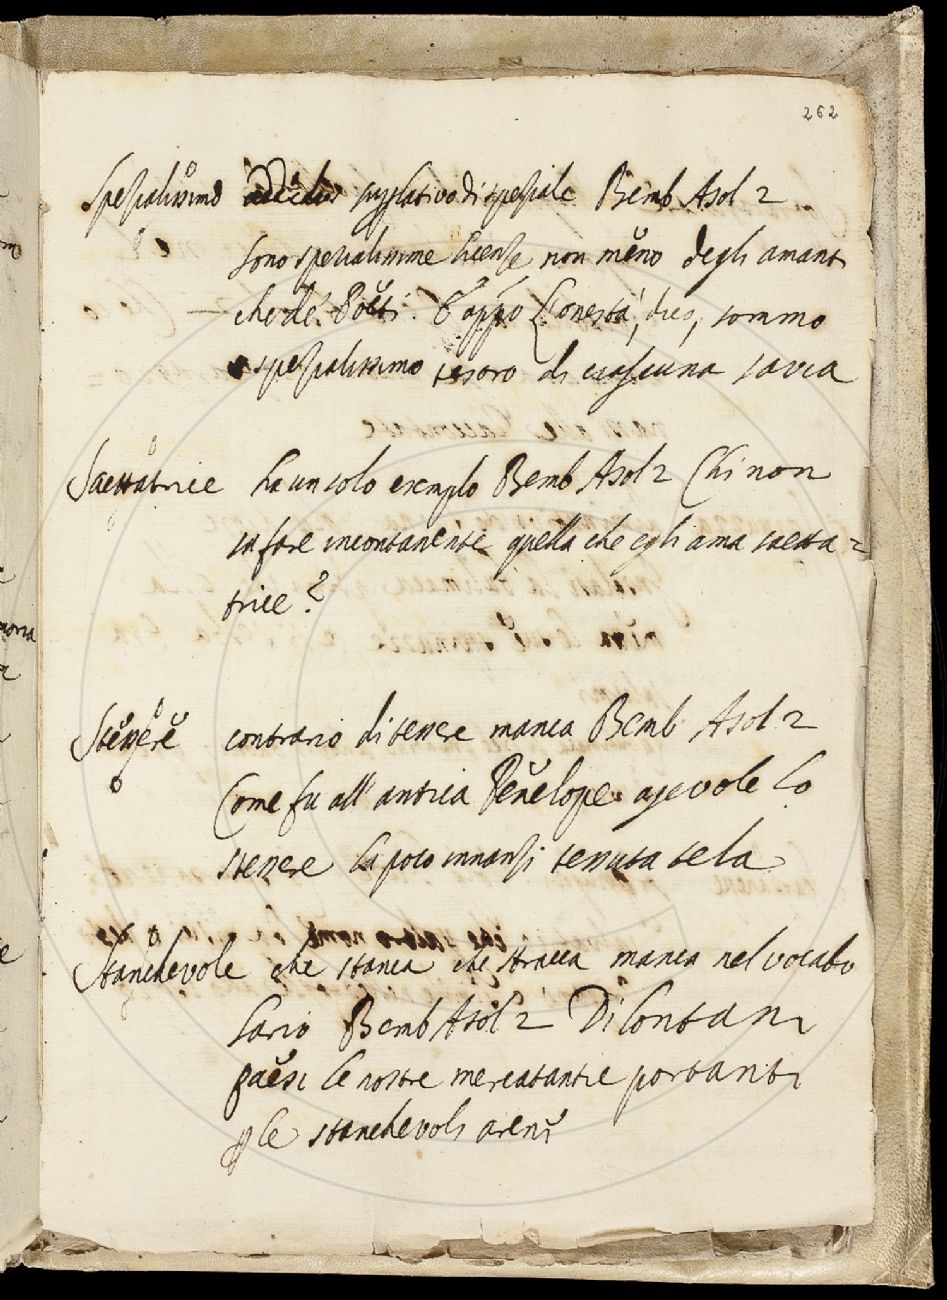 262
Spezialissimo superlativo di speziale Bemb Asol 2
sono spezialissime licenze non meno degli amanti
che de Poeti. E appo l'onestà, dico, sommo
spezialissimo tesoro di ciascuna savia
Saettatrice ha un solo exemplo Bemb Asol 2 Chi non
sa fare incontanente quella che egli ama saetta=
trice?
Stessere contrario di tessere manca Bemb Asol 2
Come fu all' antica Penelope agevole lo
stessere la poco innanzi tessuta tela
Stanchevole che stanca che stracca manca nel vocabo
lario Bemb Asol 2 Di lontani
paesi le nostre mercatantie portanti
p le stanchevoli areni